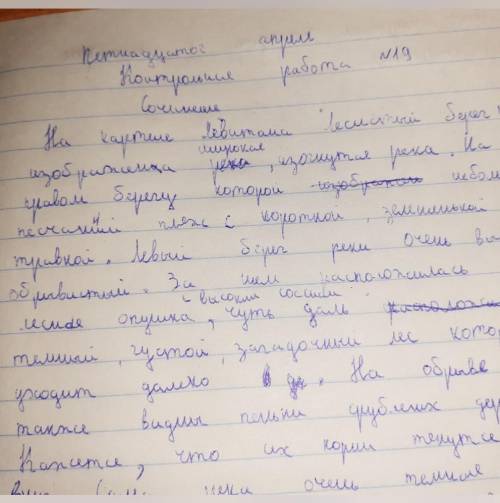 Петнадцатое апреля
Контрольная работа №19
Сочинение
На картине Левитана "Лесистый берег"
изображена широкая река, изогнутая река. На
правом берегу которой изображен небол
песчаный пляж с короткой, зелененькой
травкой. Левый берег реки очень вы
обрывистый. За ним расположилась
лесная опушка, с высокими соснами чуть даль расположи
темный, густой, загадочный лес кото
уходит далеко в да. На обрыве
также видны пеньки срубленых дер
Кажется, что их корни тянутся
вниз реки очень темная